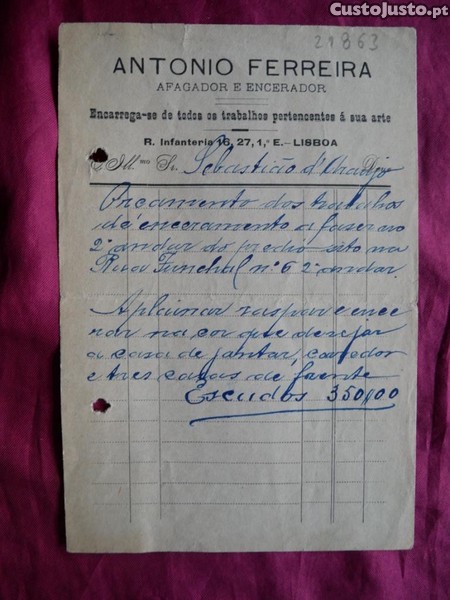 CustoJusto.pt
21863
ANTONIO FERREIRA
AFAGADOR E ENCERADOR
Encarrega-se de todos os trabalhos pertencentes á sua arte
R. Infanteria 16, 27, 1.º E.—LISBOA
Ill.mo Sr. Sebastião d'Araujo
Orçamento dos trabalhos
de enceramento a fazer no
2º andar do predio sito na
Rua Funchal nº 6 2º andar.
Aplainar raspar e ence
rar na cor que desejar
a casa de jantar, corredor
e tres casas de frente
Escudos 350,00